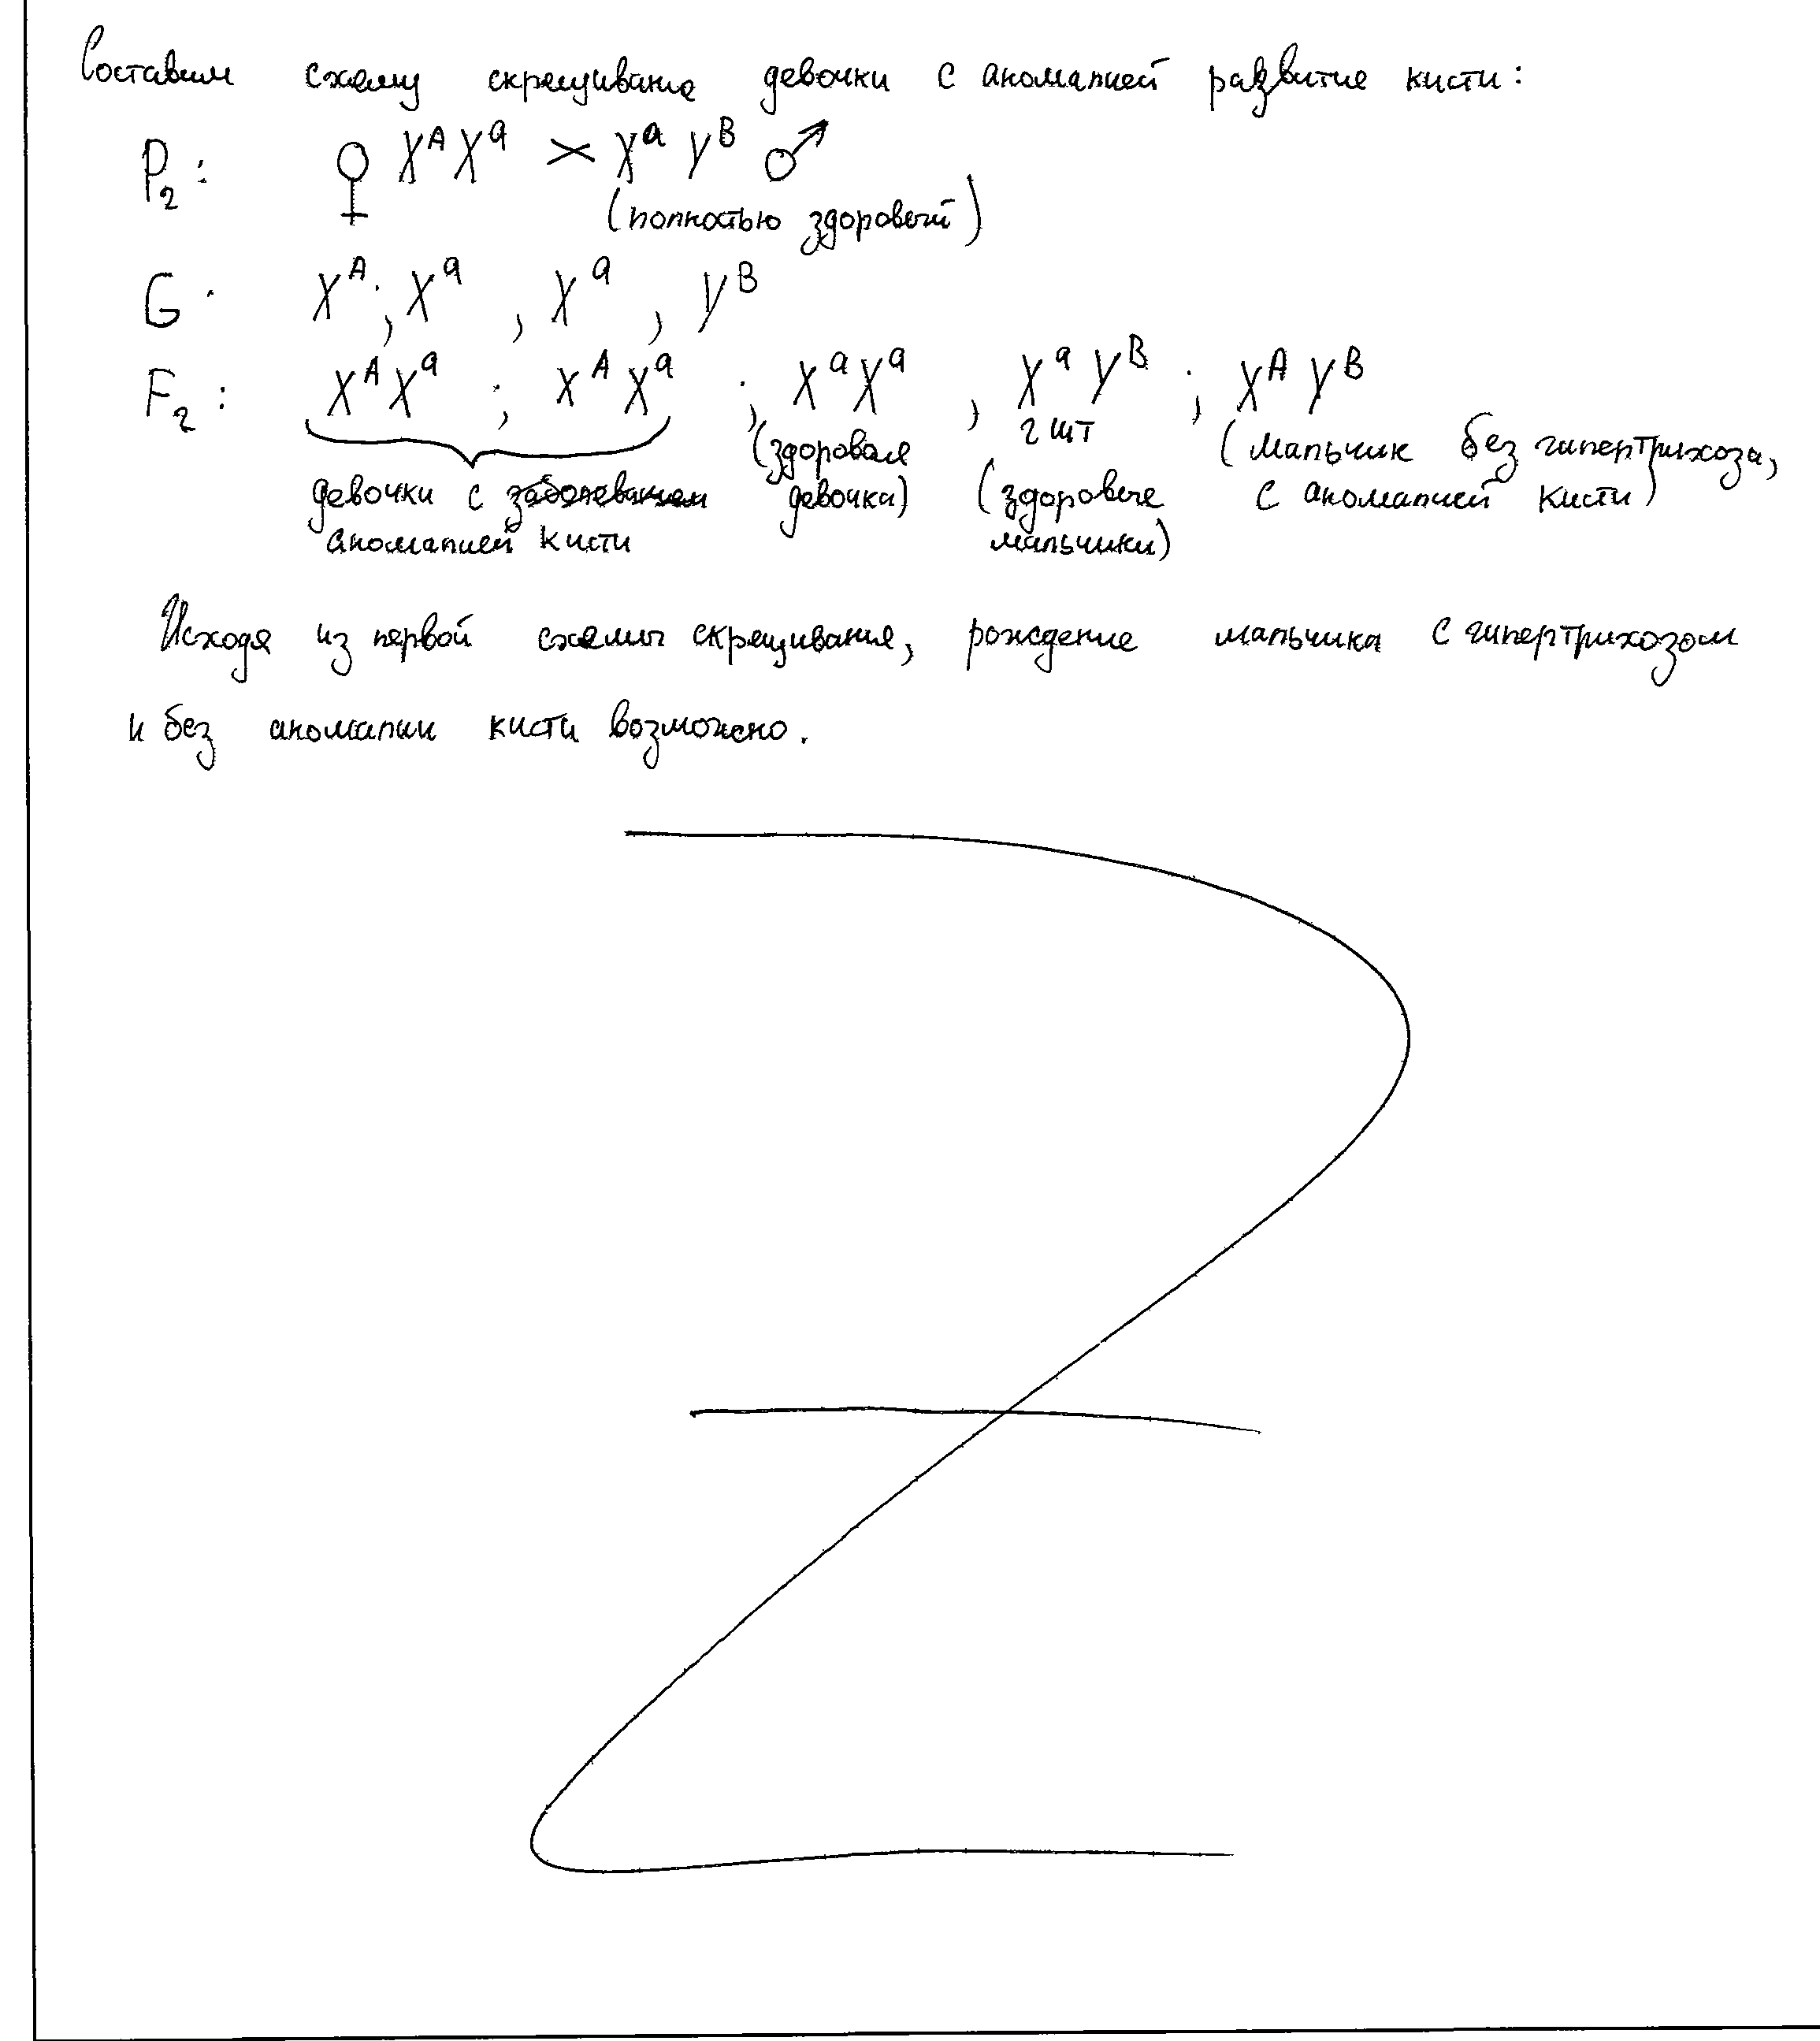 Составим схему скрещивание девочки с аномалией развитие кисти:
P₂: ♀ Xᴬ Xᵃ × Xᵃ Yᴮ ♂
(полностью здоровый)
G: Xᴬ; Xᵃ, Xᵃ, Yᴮ
F₂: Xᴬ Xᵃ; Xᴬ Xᵃ; Xᵃ Xᵃ, Xᵃ Yᴮ; Xᴬ Yᴮ
2 шт
девочки с заболеванием аномалией кисти
(здоровая девочка)
(здоровые мальчики)
(мальчик без гипертрихоза, с аномалией кисти)
Исходя из первой схемы скрещивания, рождение мальчика с гипертрихозом
и без аномалии кисти возможно.